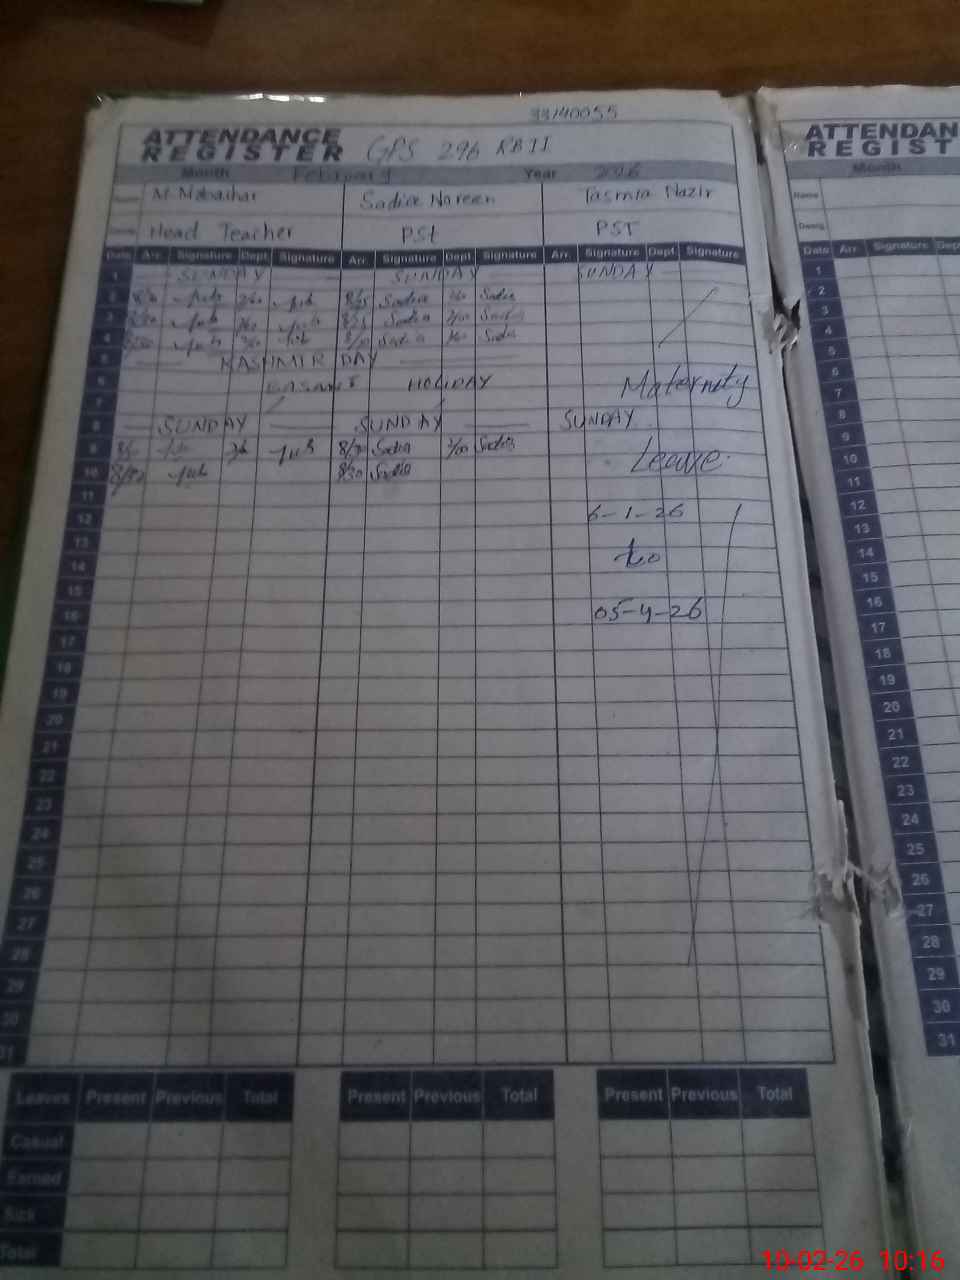 33140055
ATTENDANCE REGISTER GPS 296 RBII
Month February Year 2026
Name Sadia Noreen Tasmia Nazir
Desig Head Teacher PSt PST
Date Arr. Signature Dept Signature Arr. Signature Dept Signature Arr. Signature Dept Signature
1 SUNDAY SUNDAY SUNDAY
2 Sadia Sadia
3 Sadia Sadia
4 8/30 Sadia Sadia
5 KASHMIR DAY
6 BASANT HOLIDAY
7 Maternity
8 SUNDAY SUNDAY SUNDAY
9 8/30 Sadia Sadia
10 8/30 8/30 Sadia Leave
11
12 6-1-26
13
14 to
15
16 05-4-26
17
18
19
20
21
22
23
24
25
26
27
28
29
30
31
Leaves Present Previous Total Present Previous Total Present Previous Total
Casual
Earned
Sick
Total
ATTENDAN
REGIST
Month
Name
Desig
Date Arr. Signature Dep
1
2
3
4
5
6
7
8
9
10
11
12
13
14
15
16
17
18
19
20
21
22
23
24
25
26
27
28
29
30
31
10-02-26 10:16